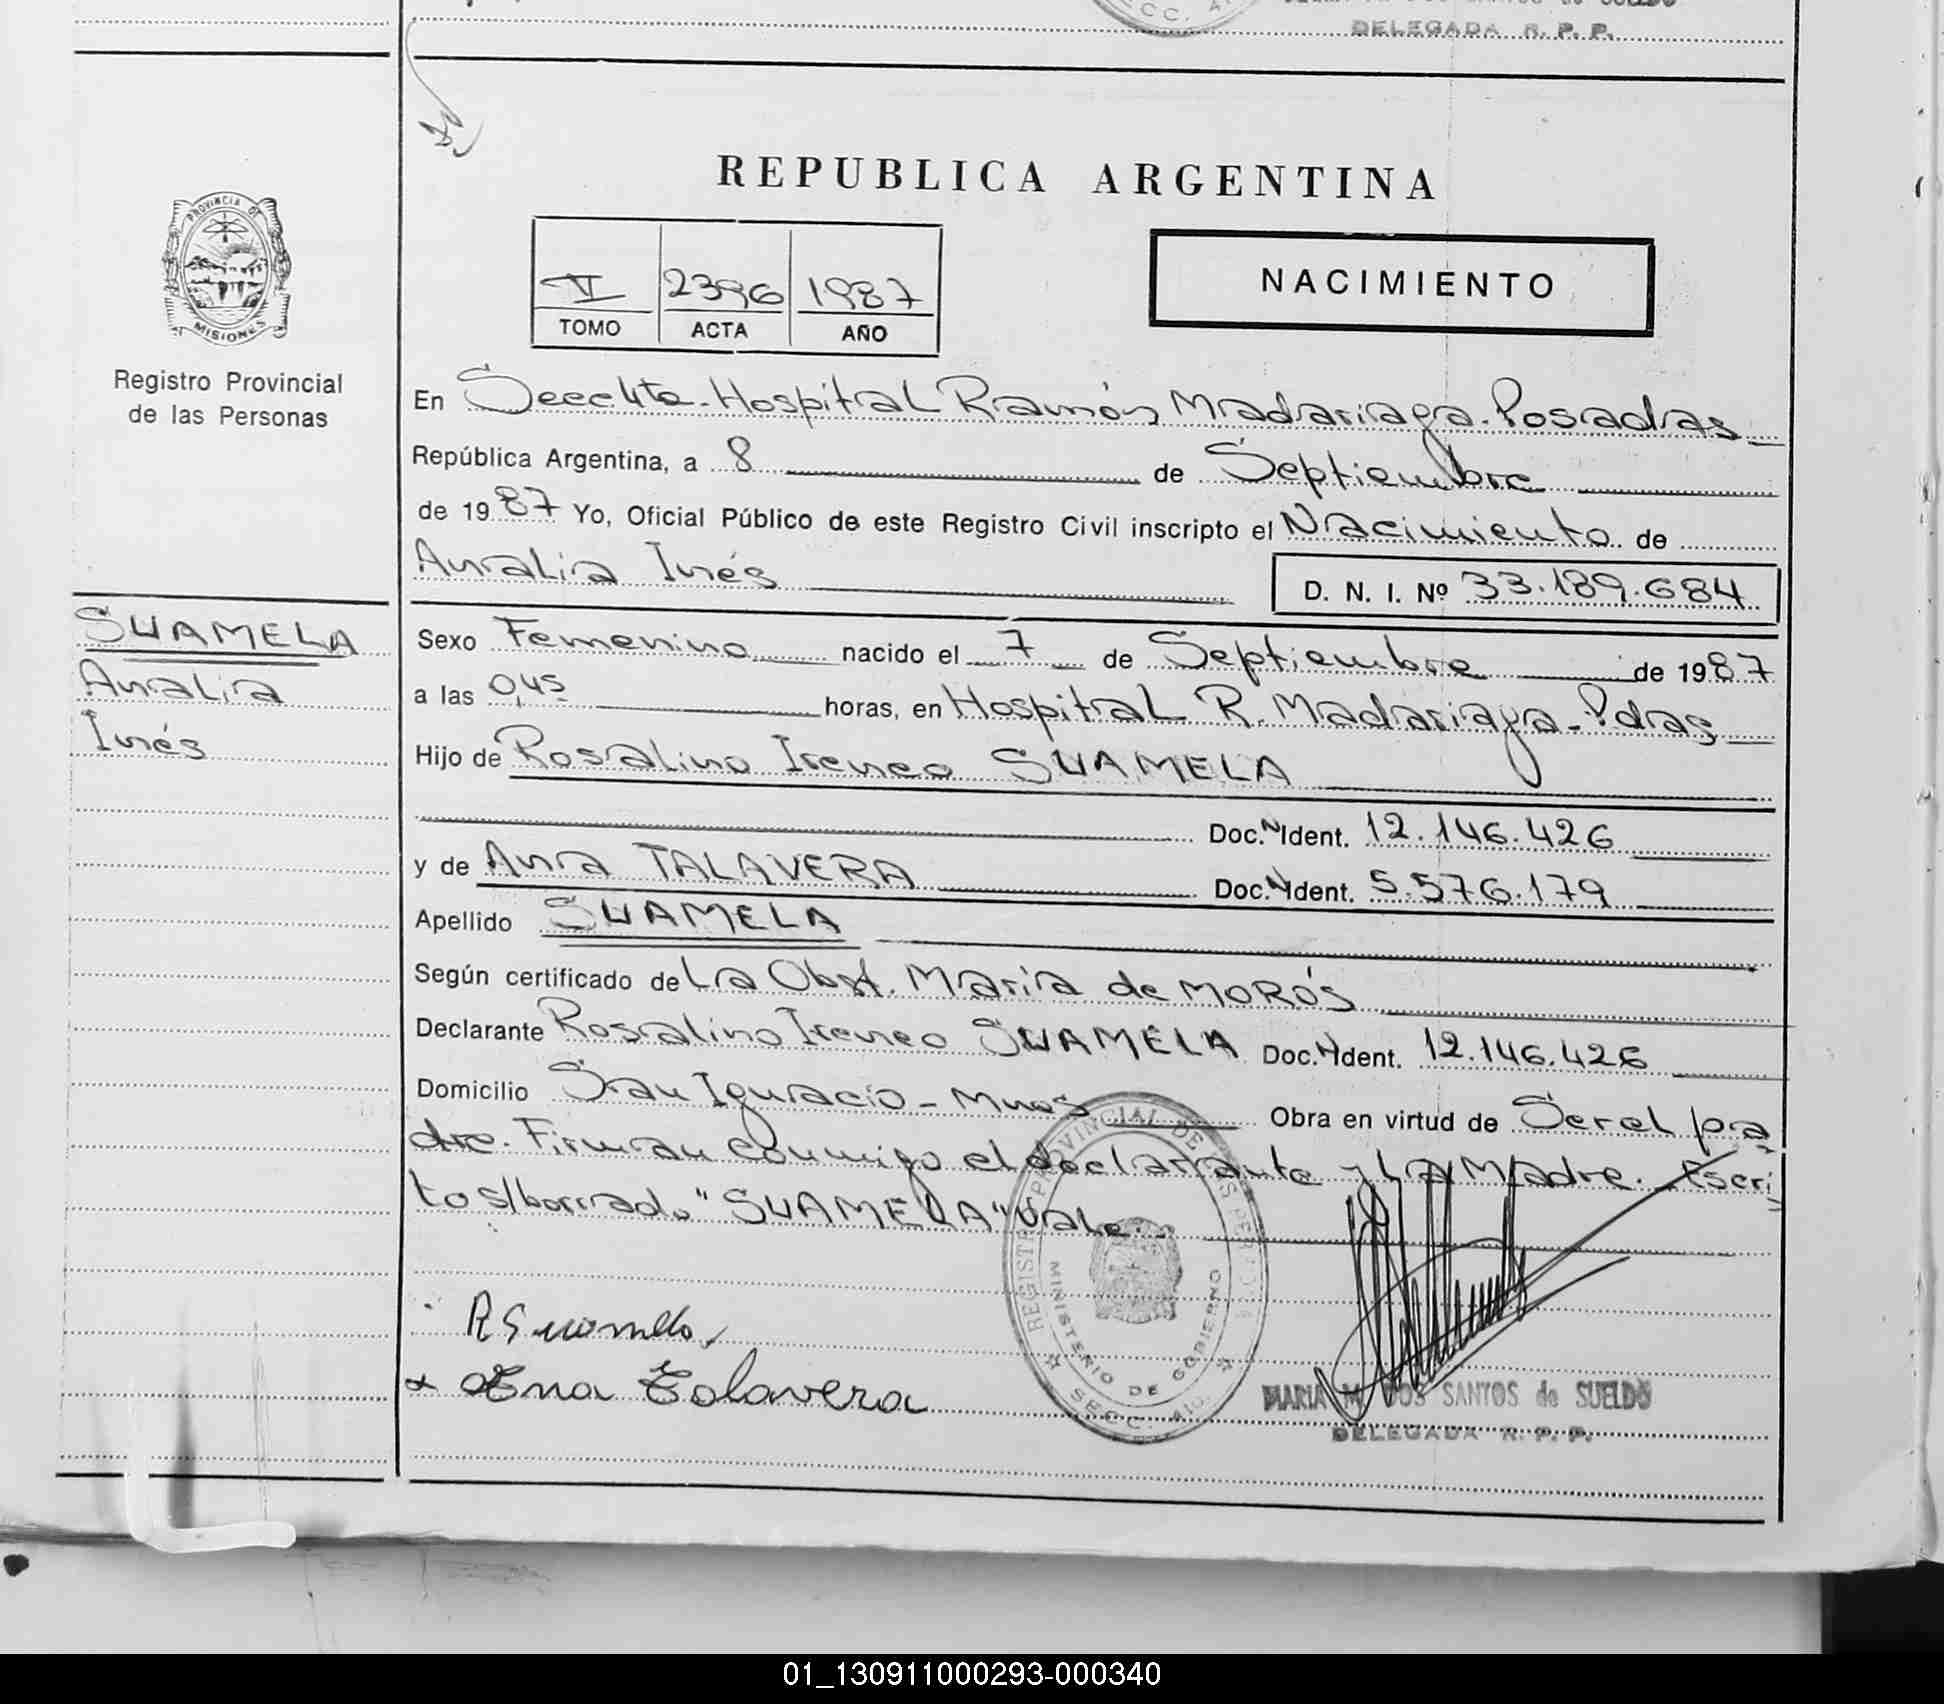 DELEGADA R. P. P.
REPUBLICA ARGENTINA
PROVINCIA DE
MISIONES
V 2396 1987
TOMO ACTA AÑO
NACIMIENTO
Registro Provincial
de las Personas
En Secc 4ta. Hospital Ramón Madariaga. Posadas
República Argentina, a 8 de Septiembre
de 1987 Yo, Oficial Público de este Registro Civil inscripto el Nacimiento de
Analia Inés D. N. I. Nº 33.189.684
SUAMELA
Analia
Inés
Sexo Femenino nacido el 7 de Septiembre de 1987
a las 0,45 horas, en Hospital R. Madariaga - Pdas
Hijo de Rosalino Ireneo SUAMELA
Doc. N Ident. 12.146.426
y de Ana TALAVERA Doc. N Ident. 5.576.179
Apellido SUAMELA
Según certificado de La Obst. Maria de MORÓS
Declarante Rosalino Ireneo SUAMELA Doc. N Ident. 12.146.426
Domicilio San Ignacio - Mnes Obra en virtud de Ser el pa
dre. Firman conmigo el declarante y La Madre. Escri
to s/borrado "SUAMELA" Vale.
REGISTRO PROVINCIAL DE LAS PERSONAS
MINISTERIO DE GOBIERNO
SECC. 4ta.
R Suamela
Ana Talavera
MARIA M. DOS SANTOS de SUELDO
DELEGADA R. P. P.
01_130911000293-000340